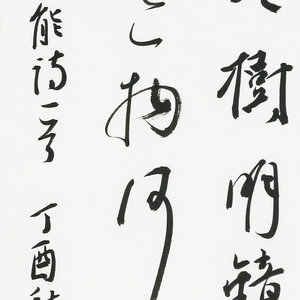 樹明鏡
一物何
能詩一首 丁酉秋